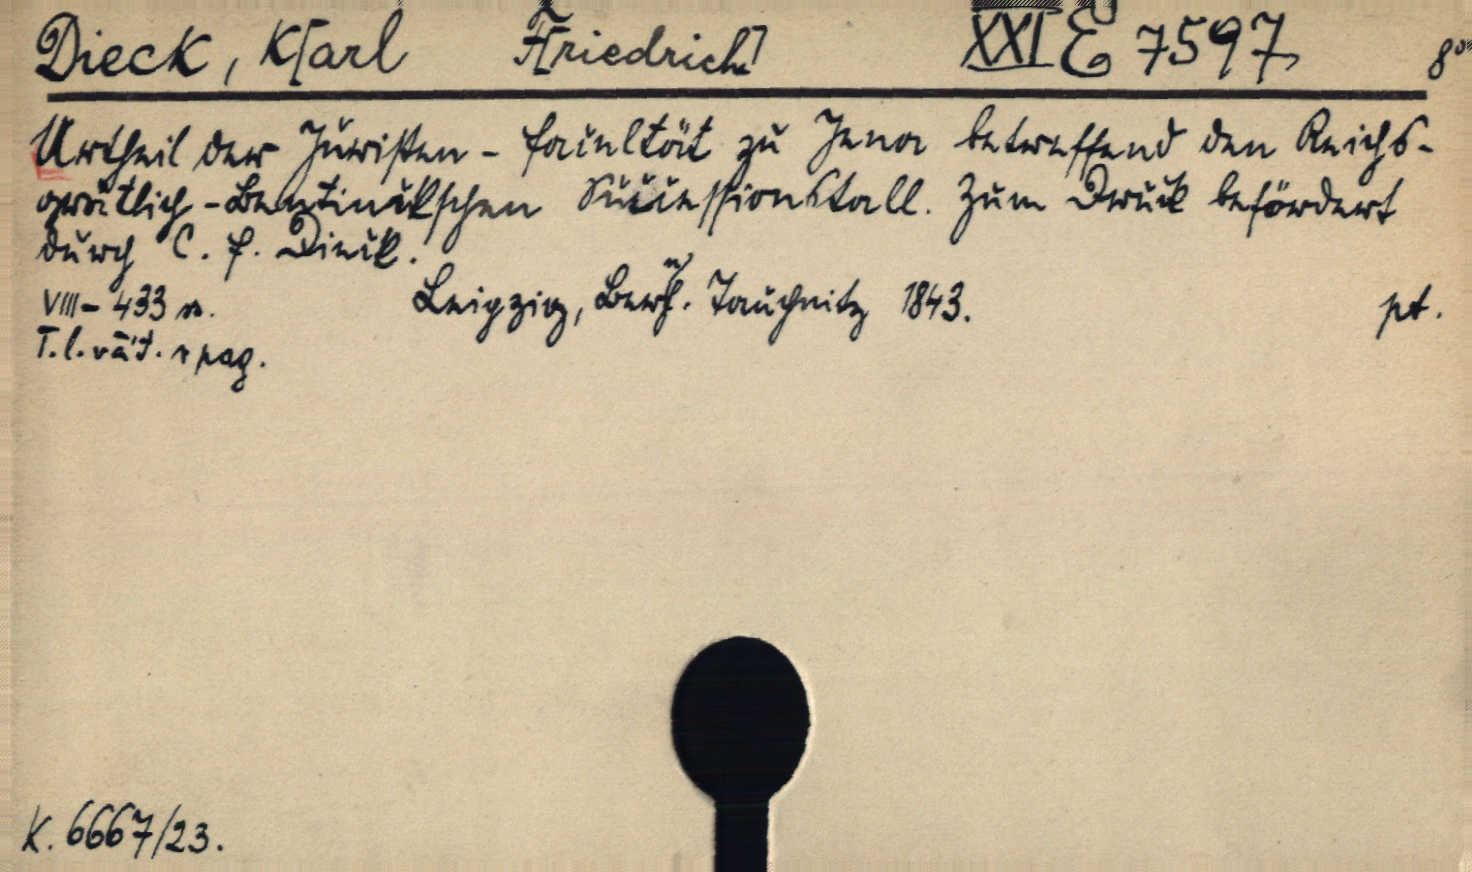 Dieck, K[arl F[riedrich] XXI E 7597 8°
Urtheil der Juristen-Facultät zu Jena betreffend den Reichs-
gräflich-Bentinckschen Successionsfall. Zum Druck befördert
durch C. F. Dieck.
VIII-433 s. Leipzig, Bernh. Tauchnitz 1843. pt.
T.l. vät. s pag.
K. 6667/23.